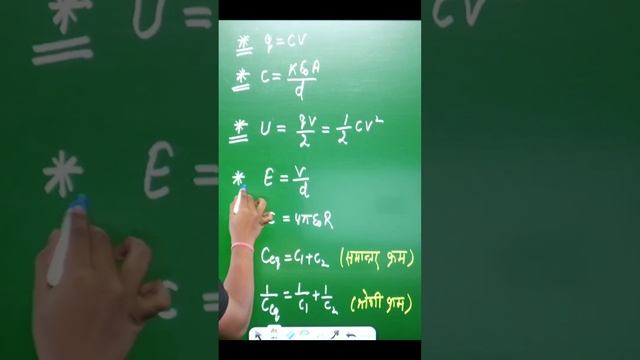 * q = CV
* C = Kε₀A/d
* U = qV/2 = 1/2 CV²
* E = V/d
= 4πε₀R
Ceq = C₁+C₂ (समान्तर क्रम)
1/Ceq = 1/C₁ + 1/C₂ (श्रेणी क्रम)